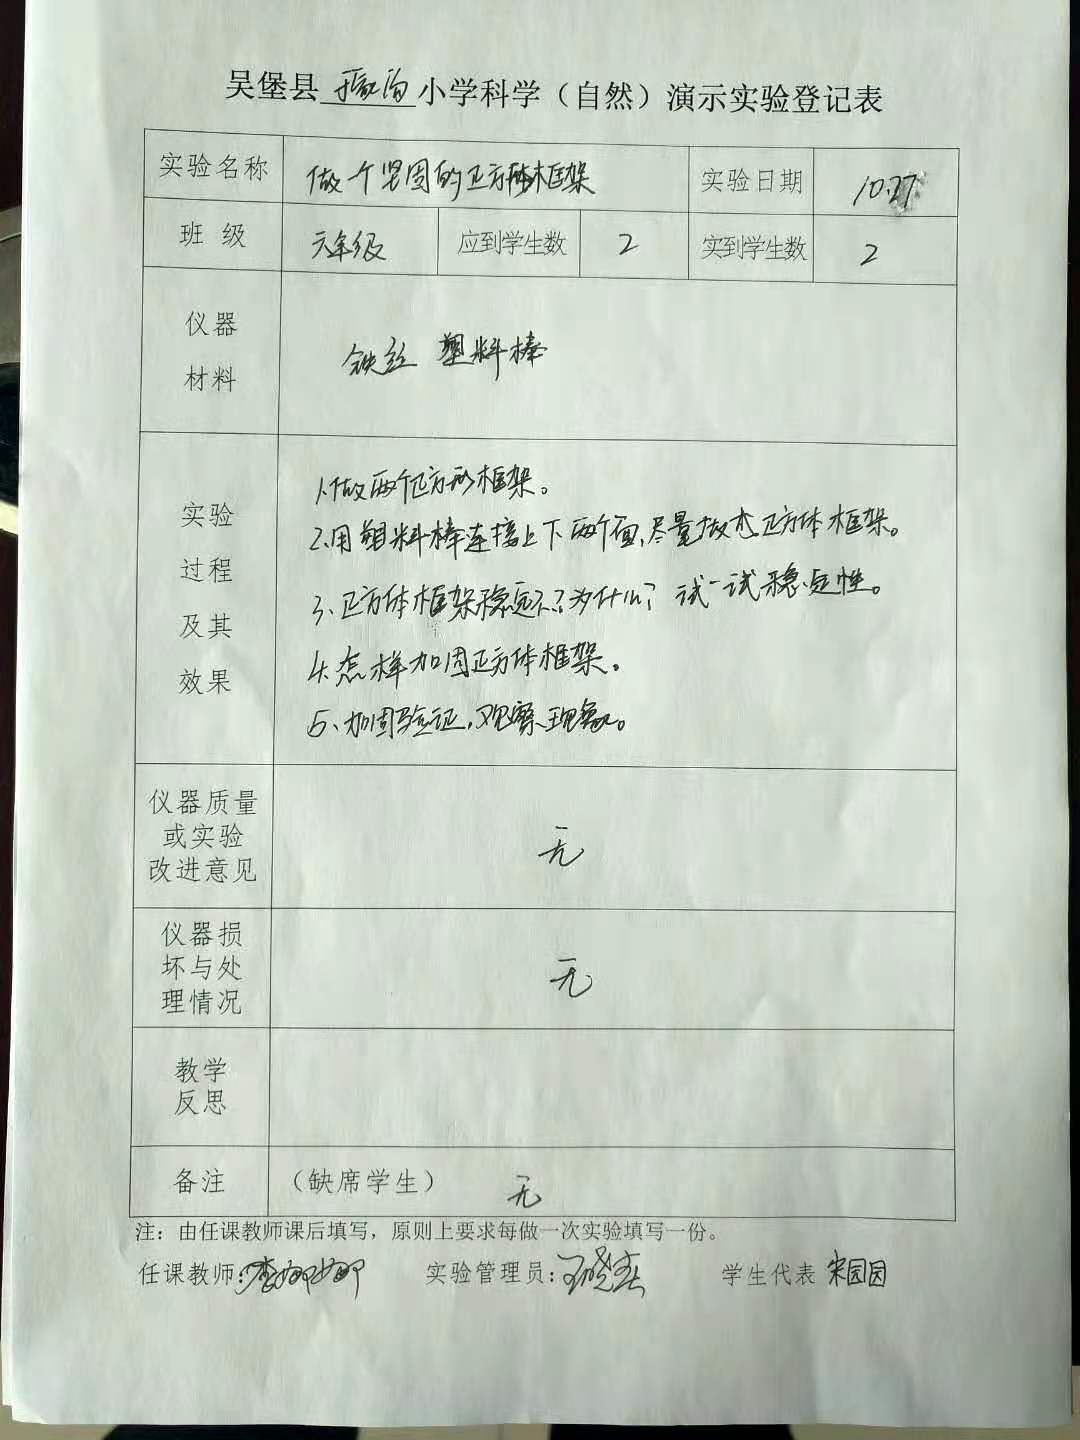 吴堡县 小学科学（自然）演示实验登记表
实验名称 做个坚固的正方体框架 实验日期 10.27
班级 六年级 应到学生数 2 实到学生数 2
仪器
材料
铁丝 塑料棒
实验
过程
及其
效果
1.做两个正方形框架。
2.用塑料棒连接上下两个面,尽量做成正方体框架。
3、正方体框架稳定不？为什么？试一试稳定性。
4.怎样加固正方体框架。
5、加固验证,观察现象。
仪器质量
或实验
改进意见
无
仪器损
坏与处
理情况
无
教学
反思
备注 （缺席学生） 无
注：由任课教师课后填写，原则上要求每做一次实验填写一份。
任课教师：李娜娜 实验管理员：王晓东 学生代表 宋园园